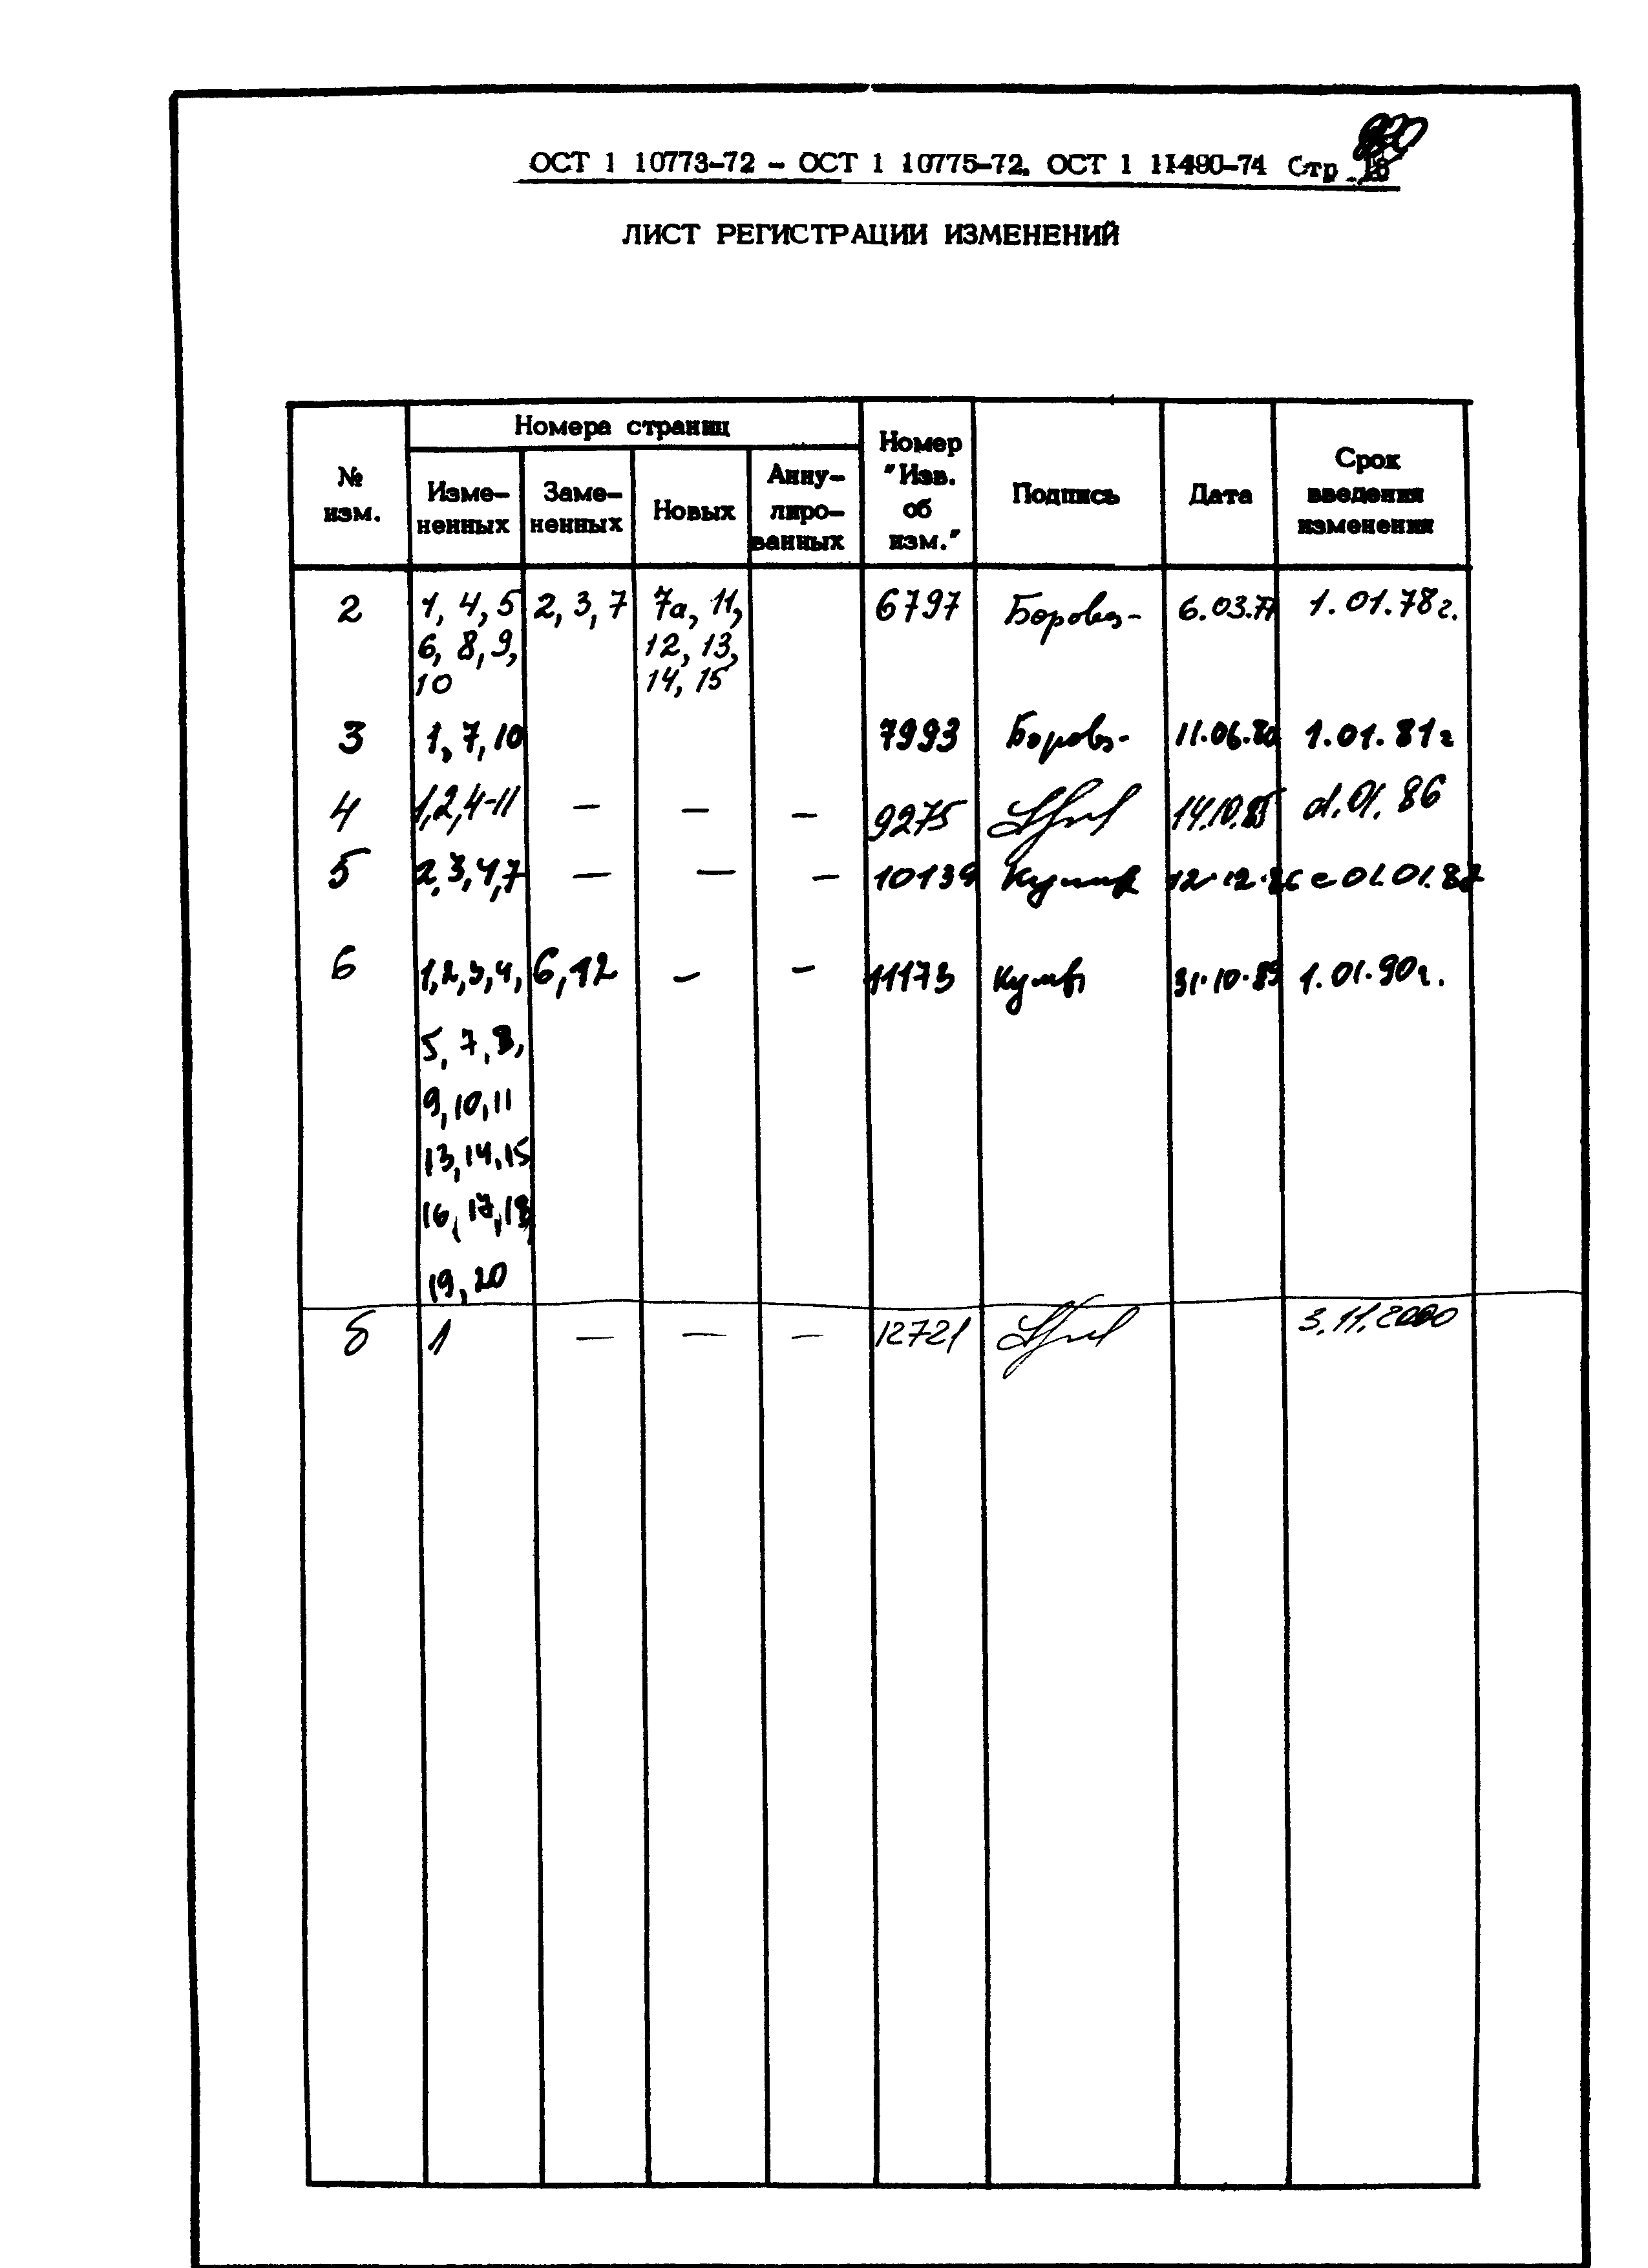 ОСТ 1 10773-72 - ОСТ 1 10775-72, ОСТ 1 11490-74 Стр
ЛИСТ РЕГИСТРАЦИИ ИЗМЕНЕНИЙ
№ изм.
Номера страниц
Изме-
ненных
Заме-
ненных
Новых
Анну-
лиро-
ванных
Номер
"Изв.
об
изм."
Подпись
Дата
Срок
введения
изменения
2 1, 4, 5 2, 3, 7 7а, 11, 6797 6.03.77 1.01.78г.
6, 8, 9, 12, 13,
10 14, 15
3 1, 7, 10 7993 11.06.80 1.01.81г
4 1,2,4-11 — — — 9275 14.10.85 01.86
5 2,3,4,7 — — — 10139 12.12.86 с 01.01.87
6 1,2,3,4, 6,12 — — 11173 31.10.89 1.01.90г.
5, 7, 8,
9,10,11
13,14,15
16,17,18,
19,20
1 — — — 12721 3.11.2000